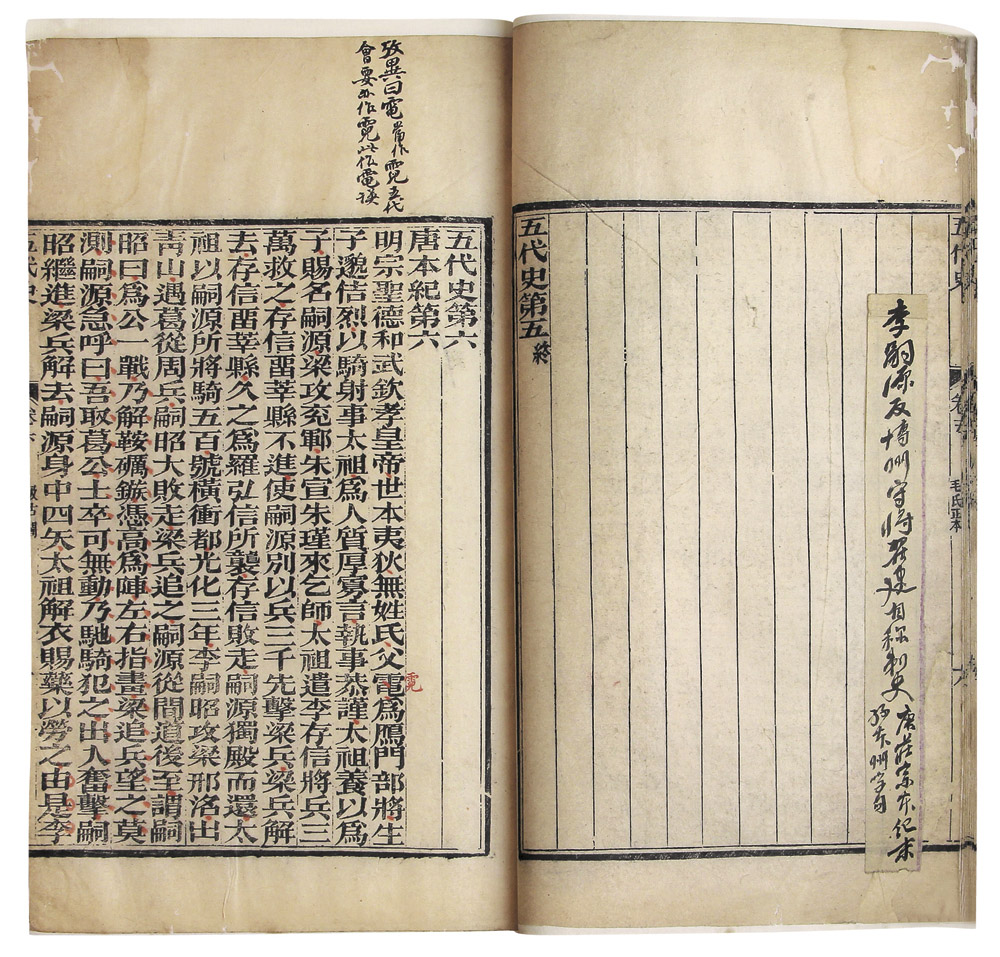 五代史
卷五
毛氏正本
李嗣源反博州守將翟建自稱刺史
唐莊宗本紀末
五代史第五 終
攷異曰電當作霓五代
會要亦作霓此作電誤
五代史第六
唐本紀第六
明宗聖德和武欽孝皇帝世本夷狄無姓氏父電爲鴈門部將生
霓
子邈佶烈以騎射事太祖爲人質厚寡言執事恭謹太祖養以爲
子賜名嗣源梁攻兖鄆朱宣朱瑾來乞師太祖遣李存信將兵三
萬救之存信畱莘縣不進使嗣源別以兵三千先擊梁兵梁兵解
去存信畱莘縣久之爲羅弘信所襲存信敗走嗣源獨殿而還太
祖以嗣源所將騎五百號橫衝都光化三年李嗣昭攻梁邢洺出
靑山遇葛從周兵嗣昭大敗走梁兵追之嗣源從間道後至謂嗣
昭曰爲公一戰乃解鞍礪鏃憑高爲陣左右指畫梁追兵望之莫
測嗣源急呼曰吾取葛公士卒可無動乃馳騎犯之出入奮擊嗣
昭繼進梁兵解去嗣源身中四矢太祖解衣賜藥以勞之由是李
五代史